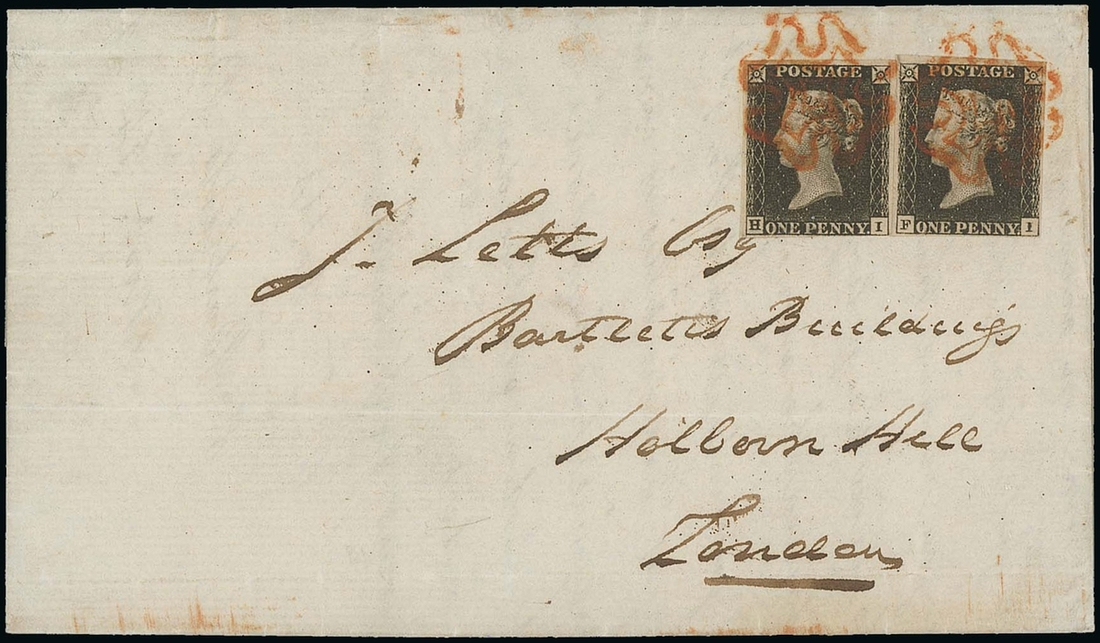 POSTAGE POSTAGE
H ONE PENNY I F ONE PENNY I
J. Letts Esq
Bartletts Buildings
Holborn Hill
London